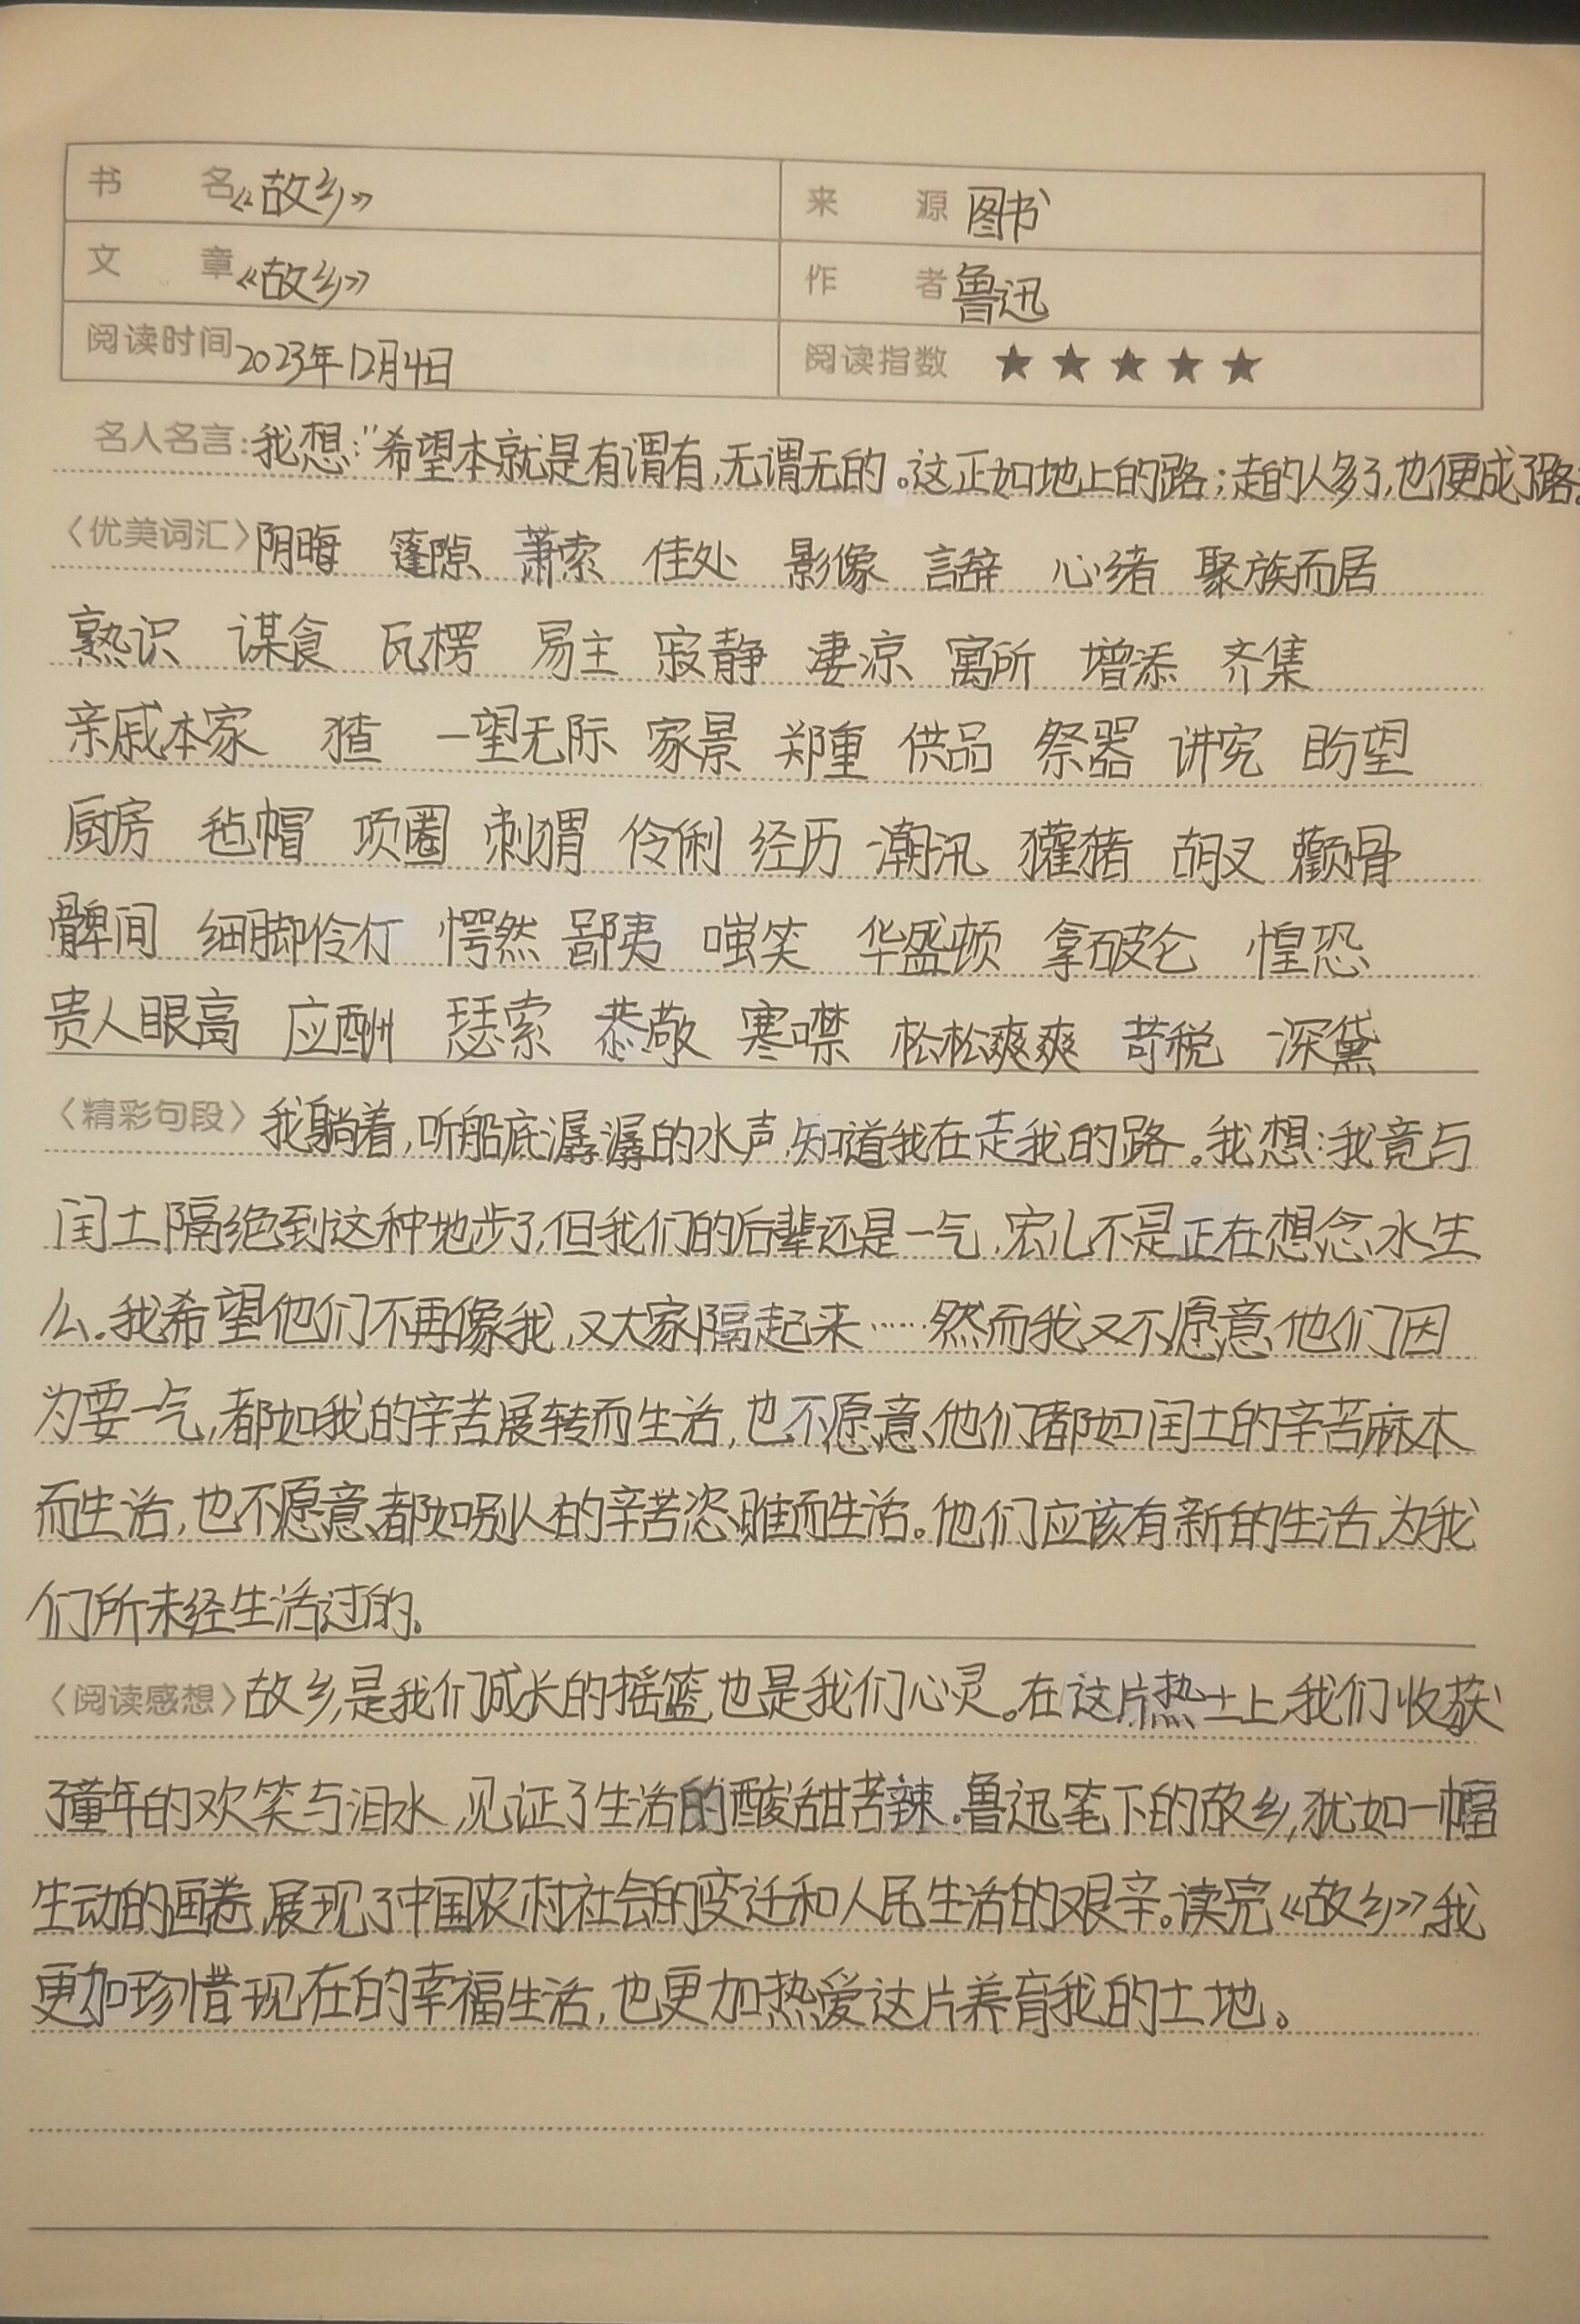 书 名《故乡》 来 源 图书
文 章《故乡》 作 者 鲁迅
阅读时间 2023年12月4日 阅读指数 ★★★★★
名人名言:我想:“希望本就是有谓有,无谓无的。这正如地上的路;走的人多了,也便成了路
〈优美词汇〉阴晦 篷隙 萧索 佳处 影像 言辞 心绪 聚族而居
熟识 谋食 瓦楞 易主 寂静 凄凉 寓所 增添 齐集
亲戚本家 猹 一望无际 家景 郑重 供品 祭器 讲究 盼望
厨房 毡帽 项圈 刺猬 伶俐 经历 潮汛 獾猪 胡叉 颧骨
髀间 细脚伶仃 愕然 鄙夷 嗤笑 华盛顿 拿破仑 惶恐
贵人眼高 应酬 瑟索 恭敬 寒噤 松松爽爽 苛税 深黛
〈精彩句段〉我躺着,听船底潺潺的水声,知道我在走我的路。我想:我竟与
闰土隔绝到这种地步了,但我们的后辈还是一气,宏儿不是正在想念水生
么.我希望他们不再像我,又大家隔起来……然而我又不愿意他们因
为要一气,都如我的辛苦展转而生活,也不愿意他们都如闰土的辛苦麻木
而生活,也不愿意都如别人的辛苦恣睢而生活。他们应该有新的生活,为我
们所未经生活过的。
〈阅读感想〉故乡,是我们成长的摇篮,也是我们心灵。在这片热土上,我们收获
了童年的欢笑与泪水,见证了生活的酸甜苦辣.鲁迅笔下的故乡,犹如一幅
生动的画卷,展现了中国农村社会的变迁和人民生活的艰辛。读完《故乡》,我
更加珍惜现在的幸福生活,也更加热爱这片养育我的土地。